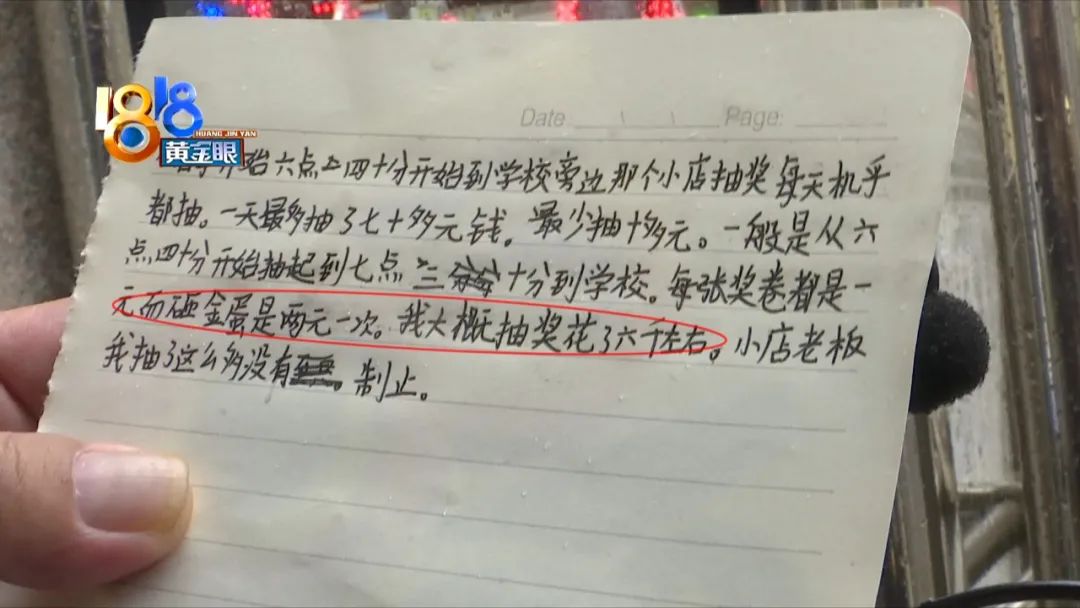 1818
HUANG JIN YAN
黄金眼
Date Page:
开始六点四十分开始到学校旁边那个小店抽奖每天机乎
都抽。一天最多抽了七十多元钱。最少抽十多元。一般是从六
点四十分开始抽起到七点二三十分到学校。每张奖卷都是一
元而砸金蛋是两元一次。我大概抽奖花了六千左右。小店老板
我抽了这么多没有制止。